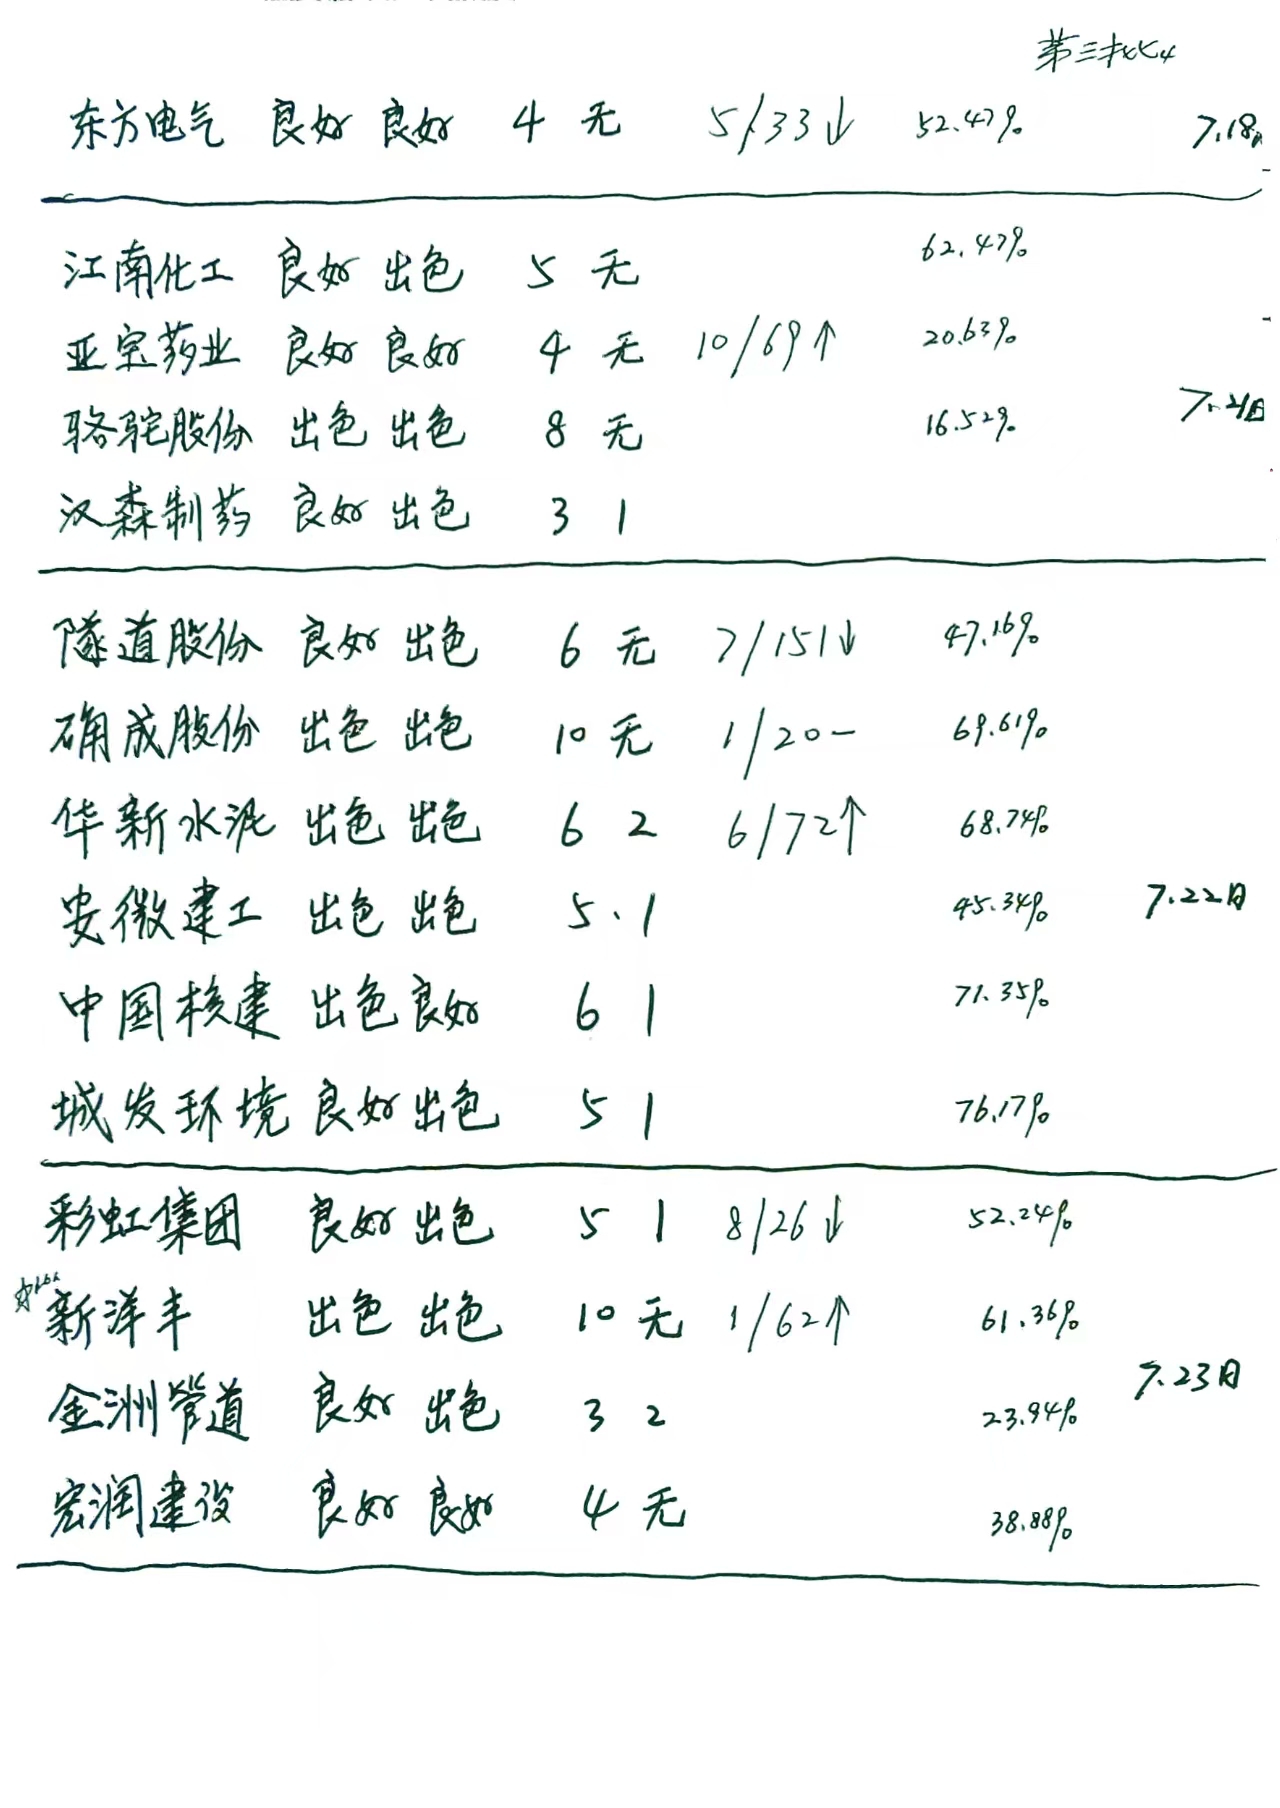 第三批4
东方电气 良好 良好 4 无 5/33↓ 52.47% 7.18日
江南化工 良好 出色 5 无 62.47%
亚宝药业 良好 良好 4 无 10/69↑ 20.63%
骆驼股份 出色 出色 8 无 16.52% 7.21日
汉森制药 良好 出色 3 1
隧道股份 良好 出色 6 无 7/151↓ 47.16%
确成股份 出色 出色 10 无 1/20- 69.61%
华新水泥 出色 出色 6 2 6/72↑ 68.74%
安徽建工 出色 出色 5.1 45.34% 7.22日
中国核建 出色 良好 6 1 71.35%
城发环境 良好 出色 5 1 76.17%
彩虹集团 良好 出色 5 1 8/26↓ 52.24%
新洋丰 出色 出色 10 无 1/62↑ 61.36%
金洲管道 良好 出色 3 2 23.94% 7.23日
宏润建设 良好 良好 4 无 38.88%